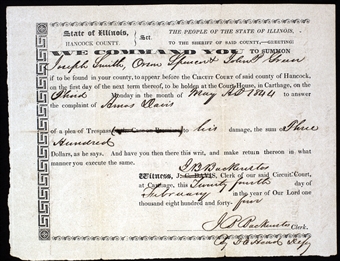 State of Illinois,
HANCOCK COUNTY. Sct.
THE PEOPLE OF THE STATE OF ILLINOIS,
TO THE SHERIFF OF SAID COUNTY,—GREETING:
WE COMMAND YOU TO SUMMON
Joseph Smith, Orson Spencer & John P. Green
if to be found in your county, to appear before the CIRCUIT COURT of said county of Hancock,
on the first day of the next term thereof, to be holden at the Court House, in Carthage, on the
Third Monday in the month of May AD 1844 to answer
the complaint of Amos Davis
of a plea of Trespass to his damage, the sum of Three
Hundred
Dollars, as he says. And have you then there this writ, and make return thereon in what
manner you execute the same.
J B Backenstos
Witness, Clerk of our said Circuit Court,
at Carthage, this Twenty fourth day of
February in the year of our Lord one
thousand eight hundred and forty-four
J B Backenstos Clerk.
By